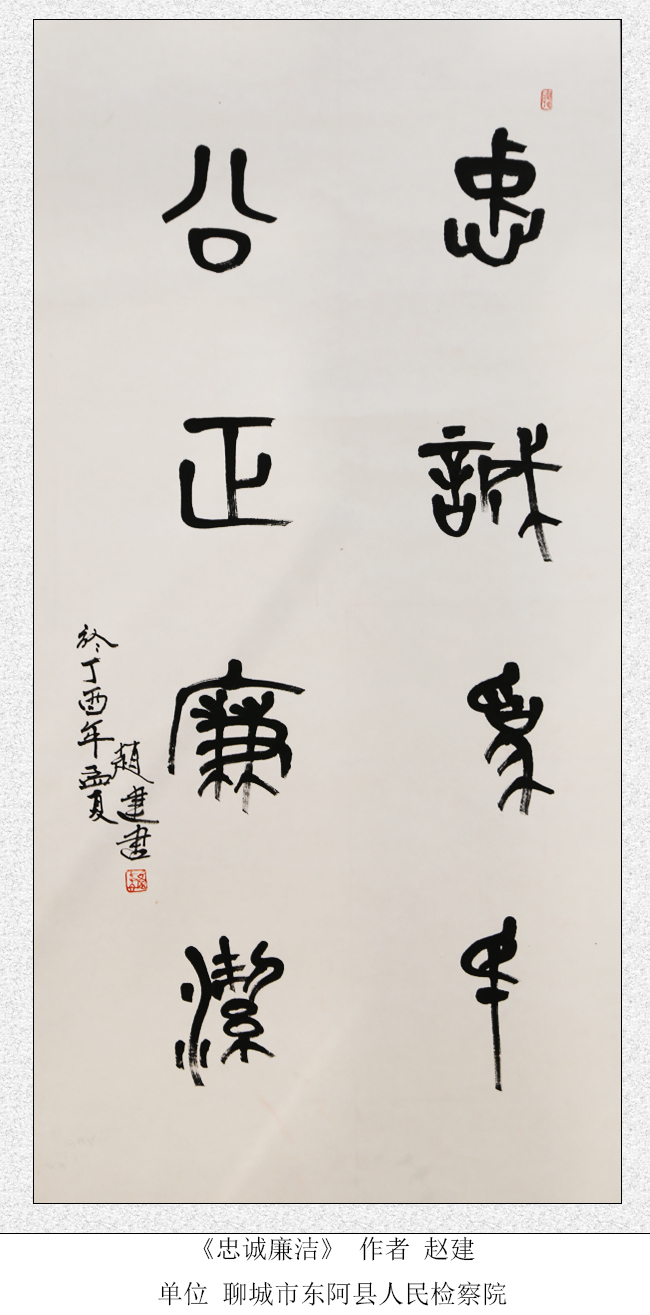 忠誠為民
公正廉潔
趙建書
於丁酉年孟夏
《忠诚廉洁》 作者 赵建
单位 聊城市东阿县人民检察院